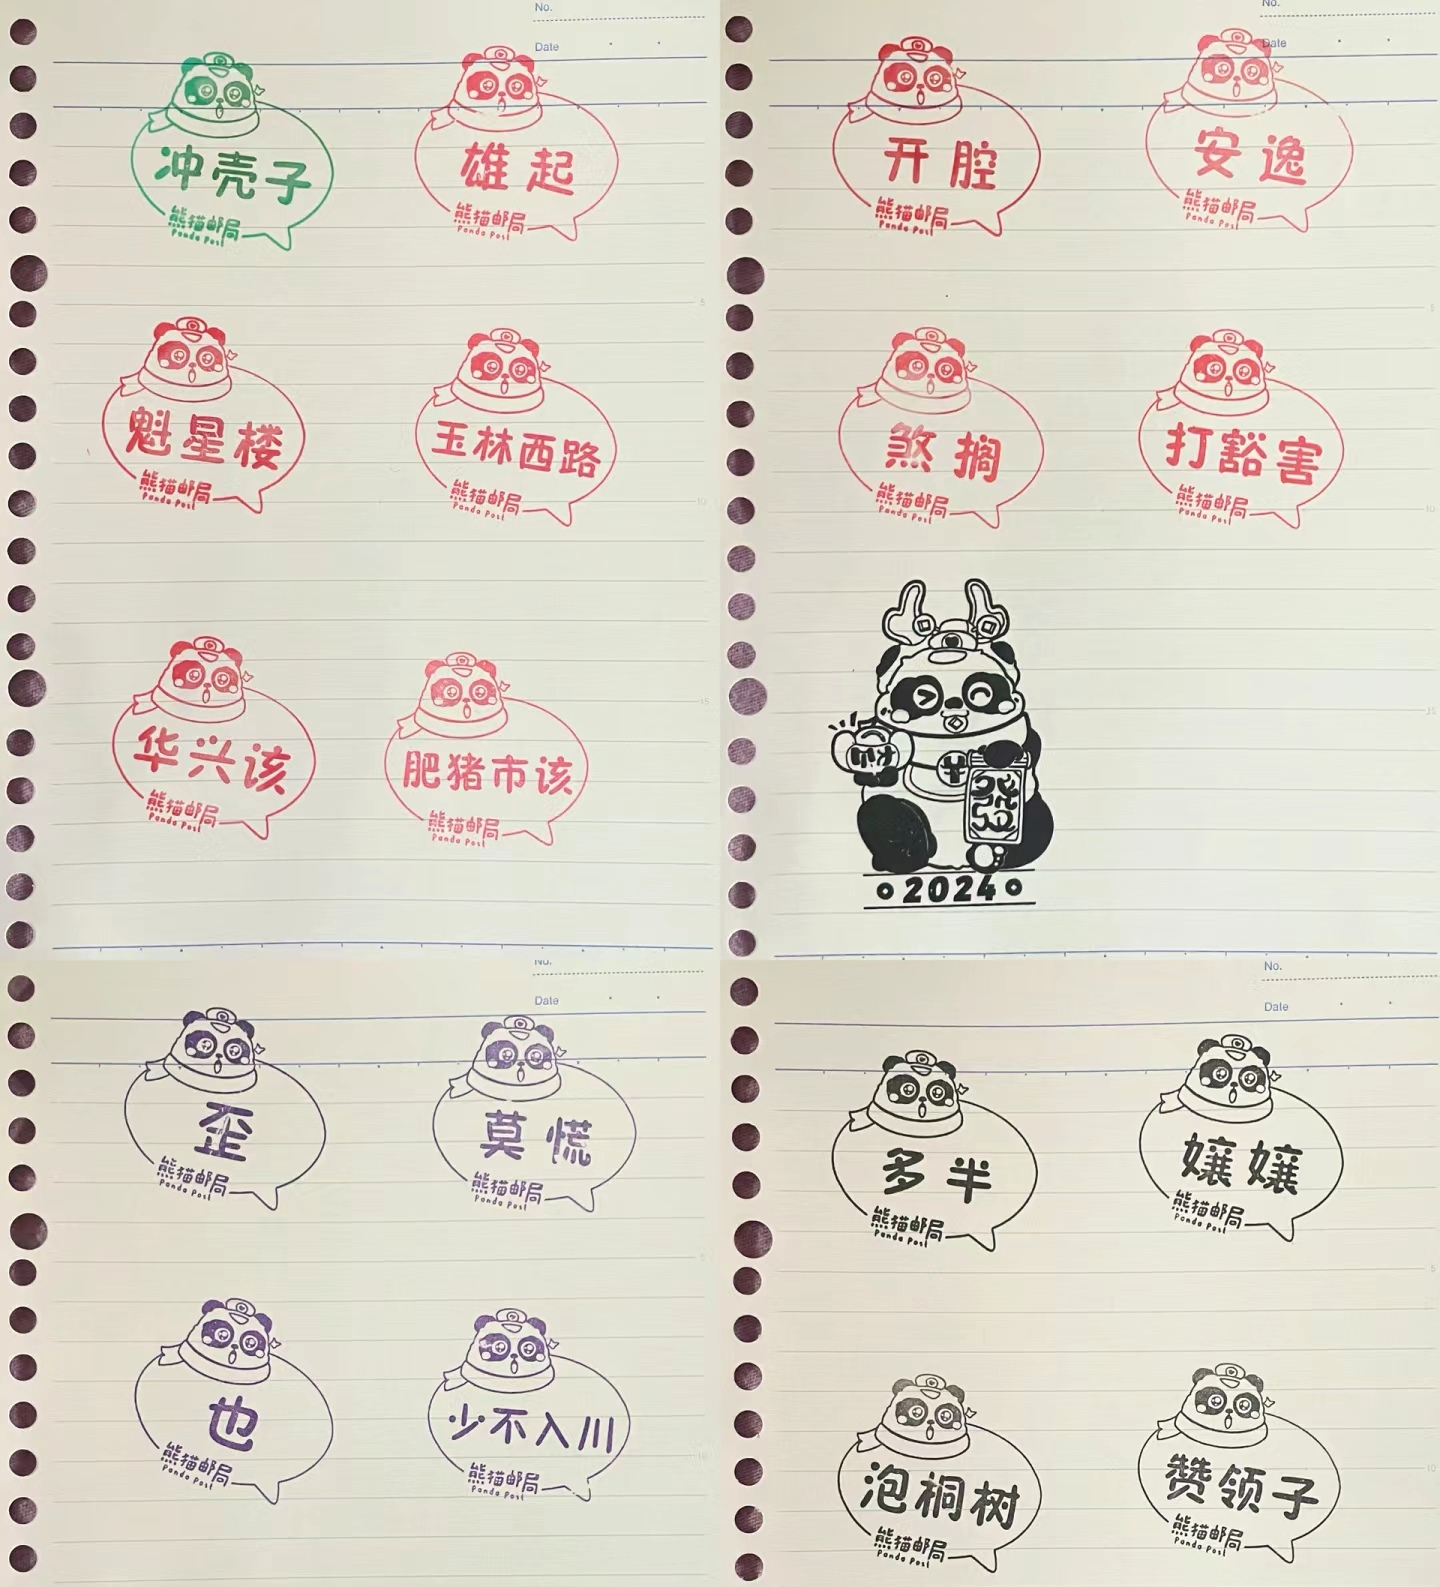 No.
Date
冲壳子
熊猫邮局
Panda Post
雄起
熊猫邮局
Panda Post
魁星楼
熊猫邮局
Panda Post
玉林西路
熊猫邮局
Panda Post
华兴该
熊猫邮局
Panda Post
肥猪市该
熊猫邮局
Panda Post
Date
开腔
熊猫邮局
Panda Post
安逸
熊猫邮局
Panda Post
煞搁
熊猫邮局
Panda Post
打豁害
熊猫邮局
Panda Post
2024
No.
Date
歪
熊猫邮局
Panda Post
莫慌
熊猫邮局
Panda Post
也
熊猫邮局
Panda Post
少不入川
熊猫邮局
Panda Post
No.
Date
多半
熊猫邮局
Panda Post
嬢嬢
熊猫邮局
Panda Post
泡桐树
熊猫邮局
Panda Post
赞领子
熊猫邮局
Panda Post